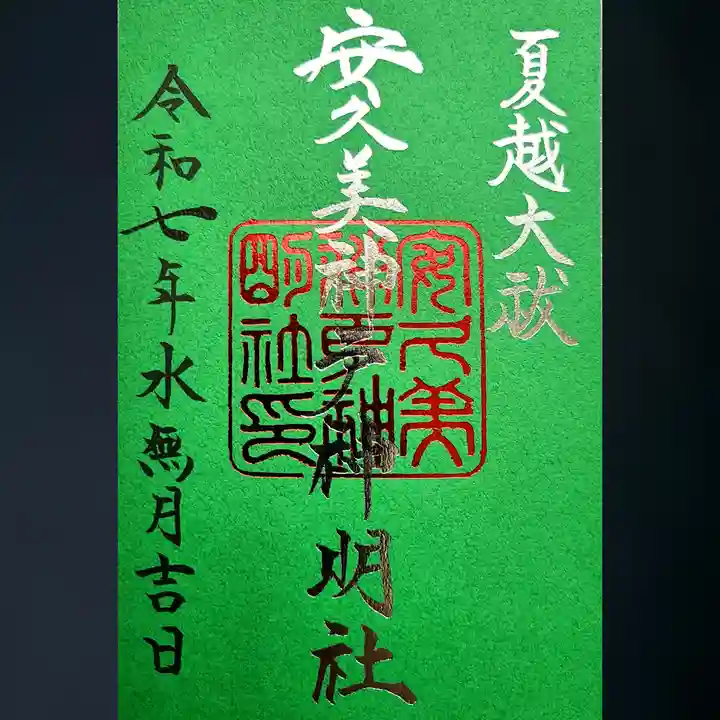 夏越大祓
安久美神戸神明社
安久美
神戸神
明社印
令和七年水無月吉日